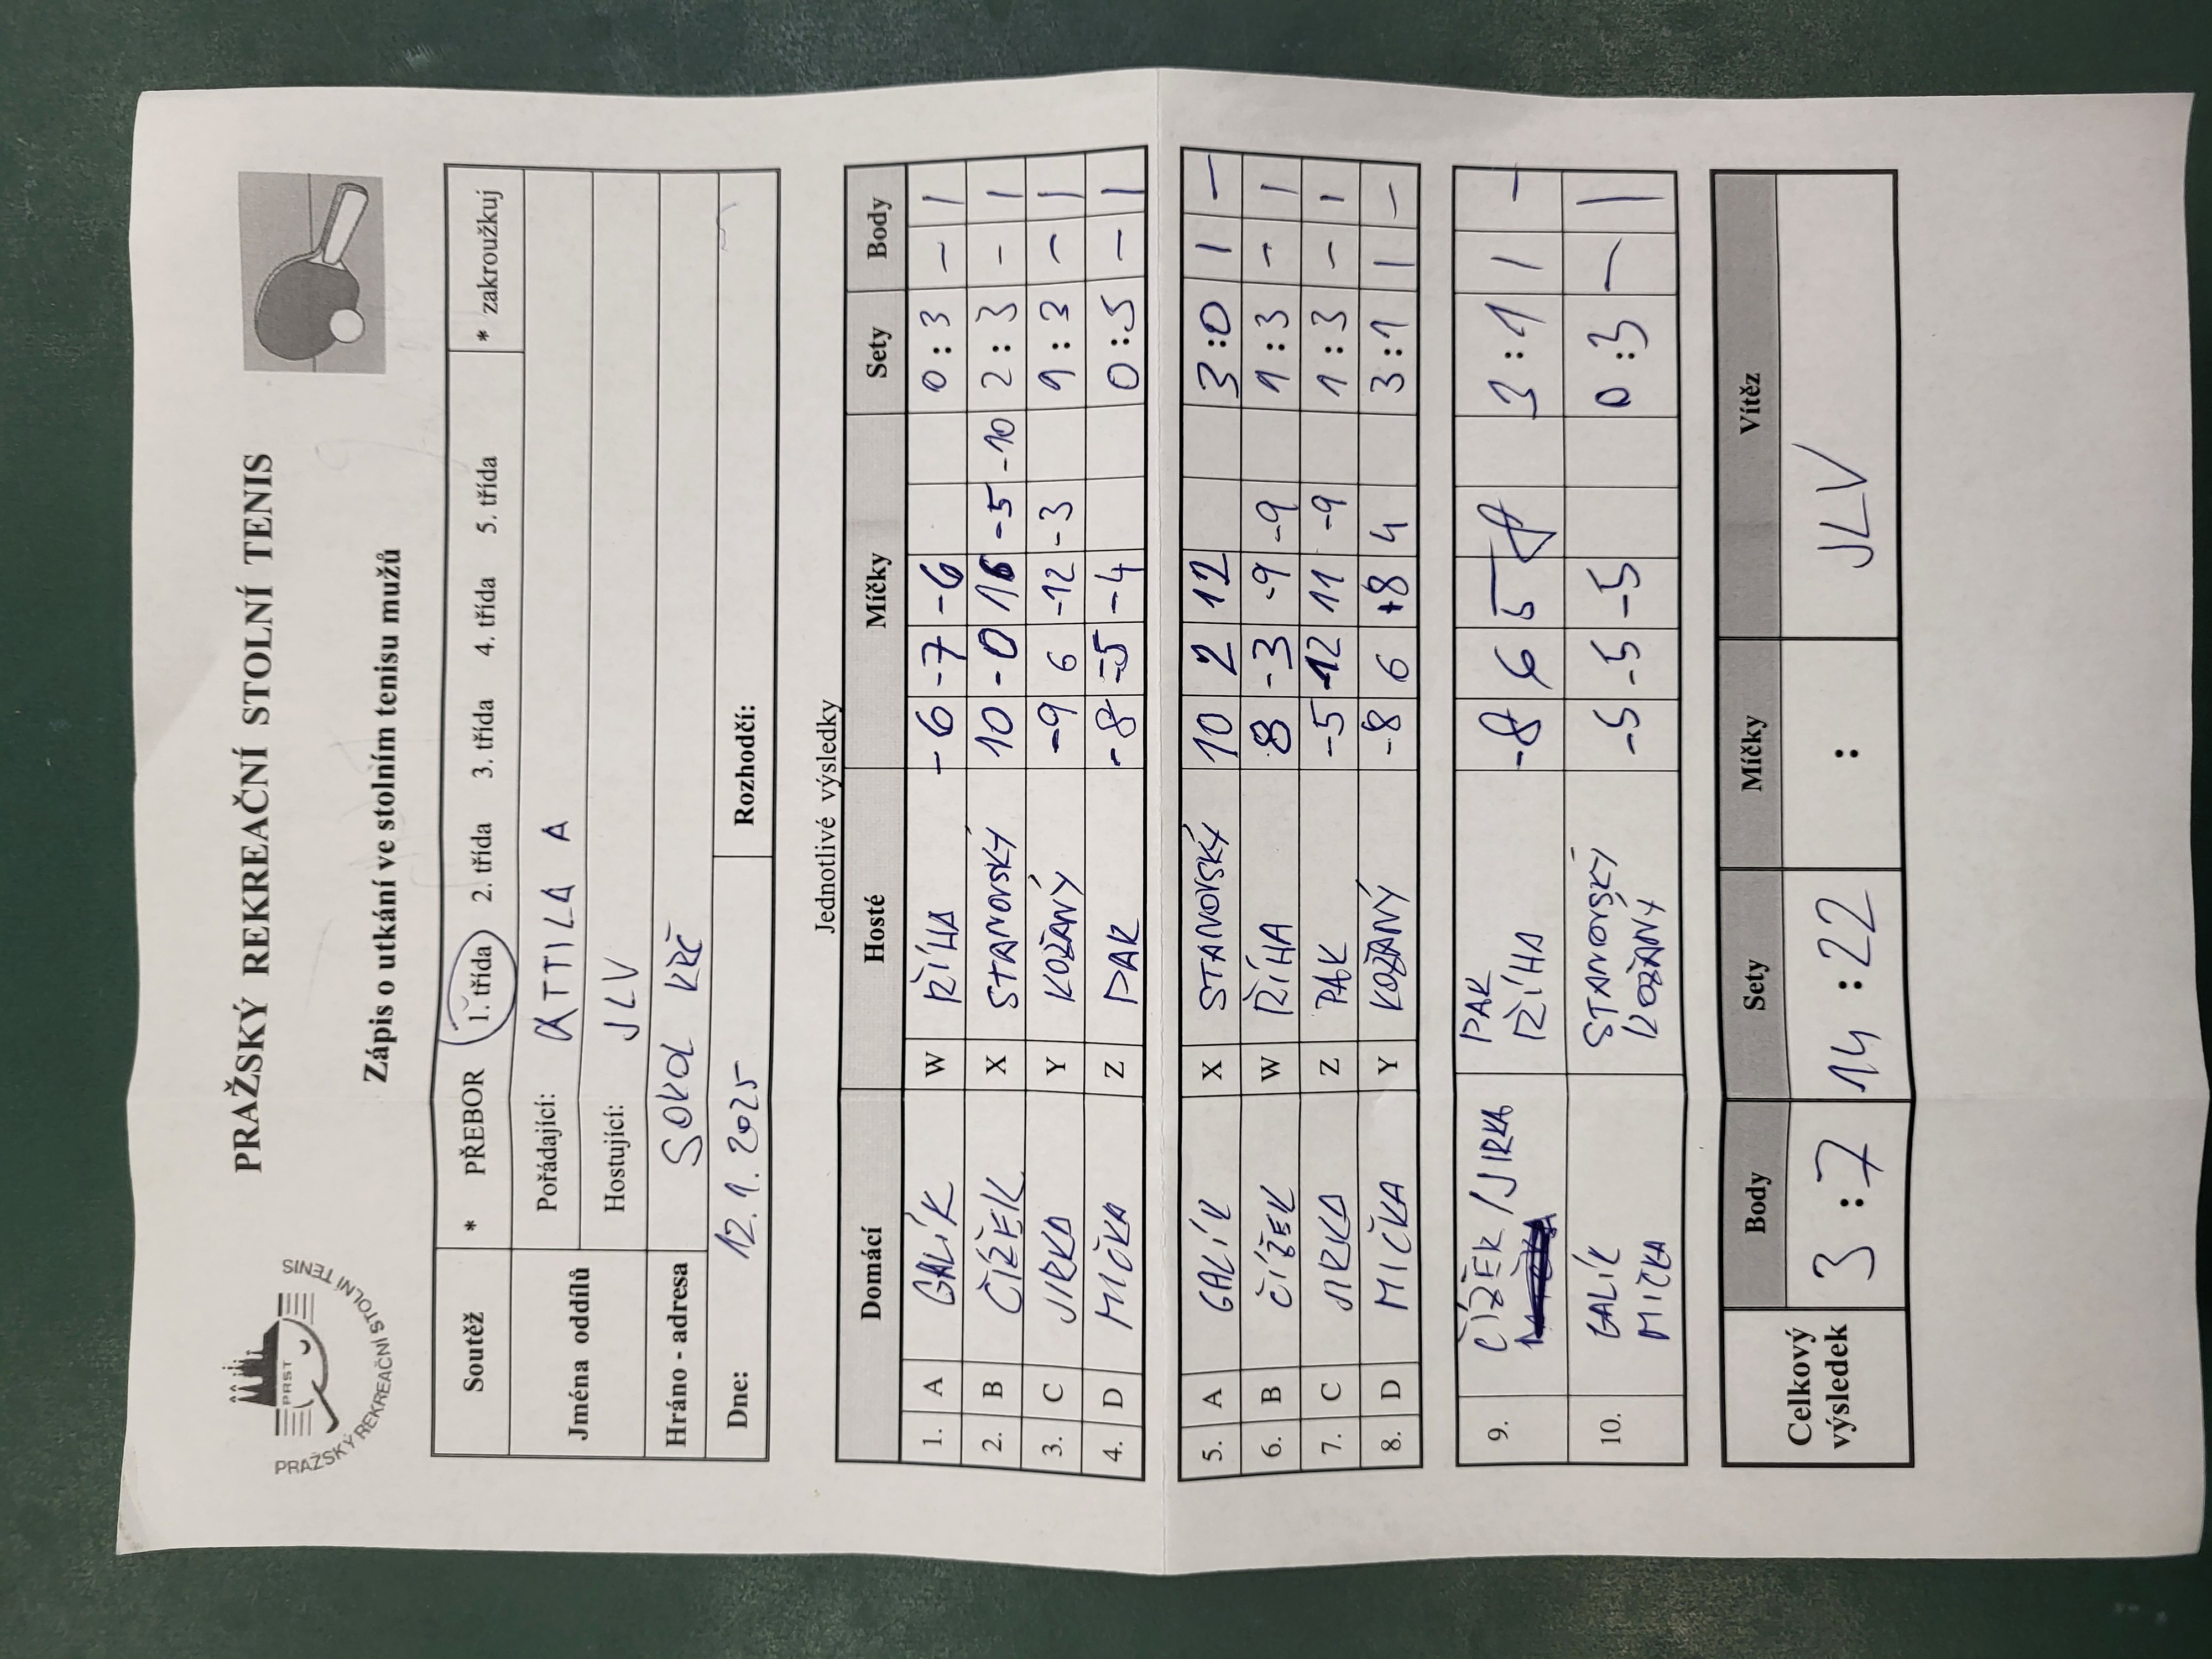 PRAŽSKÝ REKREAČNÍ STOLNÍ TENIS
PRST
PRAŽSKÝ REKREAČNÍ STOLNÍ TENIS
Zápis o utkání ve stolním tenisu mužů
Soutěž * PŘEBOR 1. třída 2. třída 3. třída 4. třída 5. třída * zakroužkuj
Jména oddílů Pořádající: ATTILA A
Hostující: JLV
Hráno - adresa SOKOL KRČ
Dne: 12.1.2025 Rozhodčí:
Jednotlivé výsledky
Domácí Hosté Míčky Sety Body
1. A GALÍK W ŘÍHA -6 -7 -6 0 : 3 – 1
2. B ČÍŽEK X STANOVSKÝ 10 -0 16 -5 -10 2 : 3 – 1
3. C JIRKA Y KOŽANÝ -9 6 -12 -3 1 : 3 – 1
4. D MIČKA Z PAK -8 -5 -4 0 : 3 – 1
5. A GALÍK X STANOVSKÝ 10 2 12 3 : 0 1 –
6. B ČÍŽEK W ŘÍHA 8 -3 -9 -9 1 : 3 – 1
7. C JIRKA Z PAK -5 -12 11 -9 1 : 3 – 1
8. D MIČKA Y KOŽANÝ -8 6 +8 4 3 : 1 1 –
9. ČÍŽEK / JIRKA PAK ŘÍHA -8 6 5 8 3 : 1 1 –
10. GALÍK MIČKA STANOVSKÝ KOŽANÝ -5 -5 -5 0 : 3 – 1
Celkový výsledek Body Sety Míčky Vítěz
3 : 7 14 : 22 : JLV